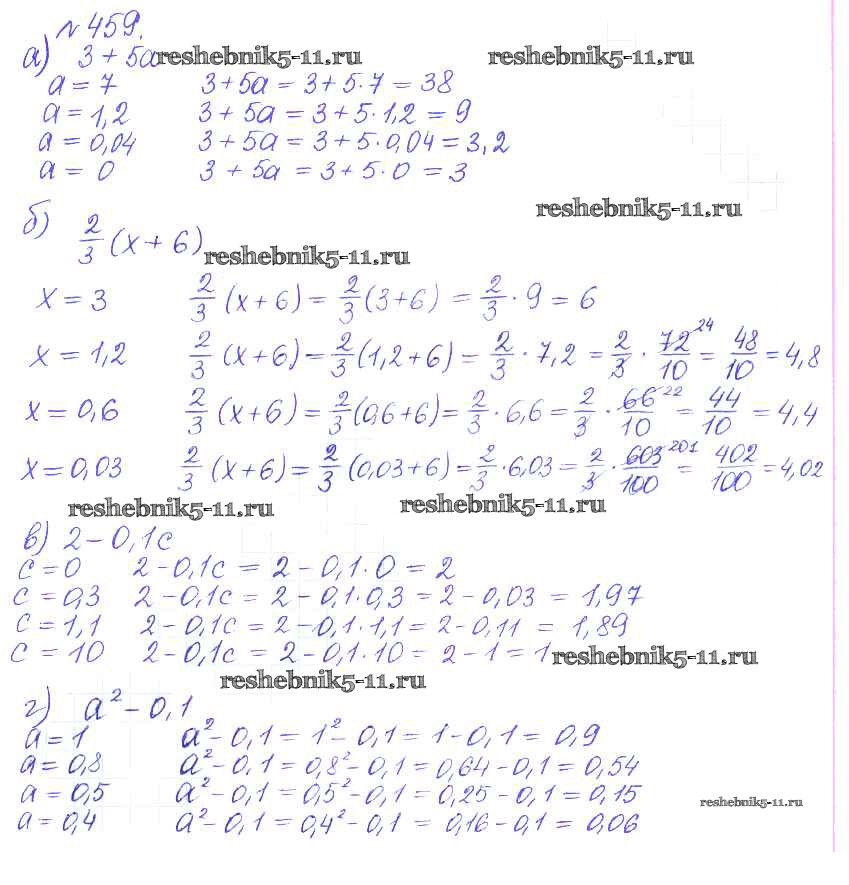 № 459.
а) 3 + 5а reshebnik5-11.ru reshebnik5-11.ru
а = 7 3 + 5а = 3 + 5·7 = 38
а = 1,2 3 + 5а = 3 + 5·1,2 = 9
а = 0,04 3 + 5а = 3 + 5·0,04 = 3,2
а = 0 3 + 5а = 3 + 5·0 = 3
reshebnik5-11.ru
б) 2/3 (х + 6) reshebnik5-11.ru
х = 3 2/3 (х + 6) = 2/3 (3 + 6) = 2/3 · 9 = 6
х = 1,2 2/3 (х + 6) = 2/3 (1,2 + 6) = 2/3 · 7,2 = 2/3 · 72/10 24 = 48/10 = 4,8
х = 0,6 2/3 (х + 6) = 2/3 (0,6 + 6) = 2/3 · 6,6 = 2/3 · 66/10 22 = 44/10 = 4,4
х = 0,03 2/3 (х + 6) = 2/3 (0,03 + 6) = 2/3 · 6,03 = 2/3 · 603/100 201 = 402/100 = 4,02
reshebnik5-11.ru reshebnik5-11.ru
в) 2 – 0,1с
с = 0 2 – 0,1с = 2 – 0,1·0 = 2
с = 0,3 2 – 0,1с = 2 – 0,1·0,3 = 2 – 0,03 = 1,97
с = 1,1 2 – 0,1с = 2 – 0,1·1,1 = 2 – 0,11 = 1,89
с = 10 2 – 0,1с = 2 – 0,1·10 = 2 – 1 = 1 reshebnik5-11.ru
reshebnik5-11.ru
г) а² – 0,1
а = 1 а² – 0,1 = 1² – 0,1 = 1 – 0,1 = 0,9
а = 0,8 а² – 0,1 = 0,8² – 0,1 = 0,64 – 0,1 = 0,54
а = 0,5 а² – 0,1 = 0,5² – 0,1 = 0,25 – 0,1 = 0,15 reshebnik5-11.ru
а = 0,4 а² – 0,1 = 0,4² – 0,1 = 0,16 – 0,1 = 0,06